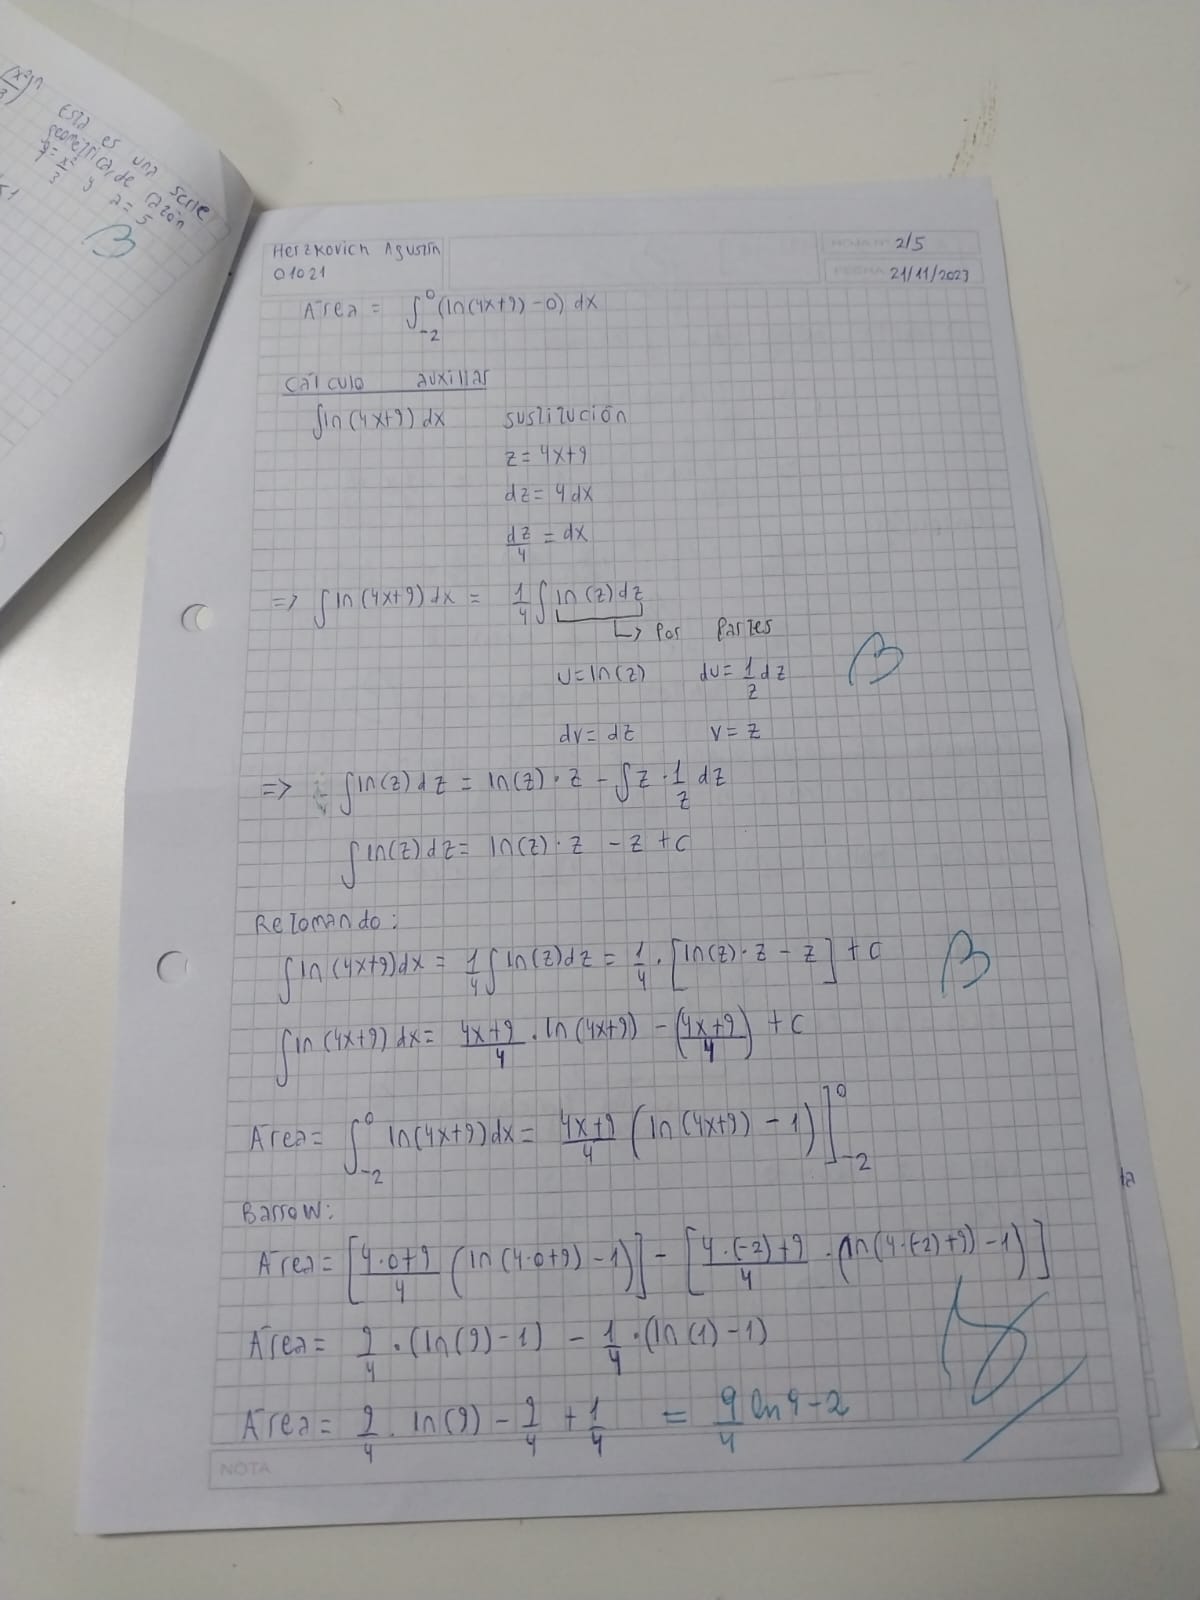 (x²/3)ⁿ
Esta es una serie
geométrica, de razón
q = x²/3 y a = 5
B
Herzkovich Agustín
01021
HOJA Nº 2/5
FECHA 21/11/2023
Área = ∫₋₂⁰ (ln(4x+9) - 0) dx
Cálculo auxiliar
∫ln(4x+9) dx sustitución
z = 4x+9
dz = 4 dx
dz/4 = dx
=> ∫ln(4x+9) dx = 1/4 ∫ln(z) dz
↳ Por Partes
u = ln(z) du = 1/z dz
B
dv = dz v = z
=> ∫ln(z) dz = ln(z) · z - ∫z · 1/z dz
∫ln(z) dz = ln(z) · z - z + c
Retomando:
∫ln(4x+9) dx = 1/4 ∫ln(z) dz = 1/4 · [ln(z) · z - z] + c B
∫ln(4x+9) dx = 4x+9/4 · ln(4x+9) - (4x+9/4) + c
Área = ∫₋₂⁰ ln(4x+9) dx = 4x+9/4 (ln(4x+9) - 1)]₋₂⁰
Barrow:
Área = [4·0+9/4 (ln(4·0+9) - 1)] - [4·(-2)+9/4 · (ln(4·(-2)+9) - 1)]
Área = 9/4 · (ln(9) - 1) - 1/4 · (ln(1) - 1)
Área = 9/4 · ln(9) - 9/4 + 1/4 = 9/4 ln 9 - 2
NOTA